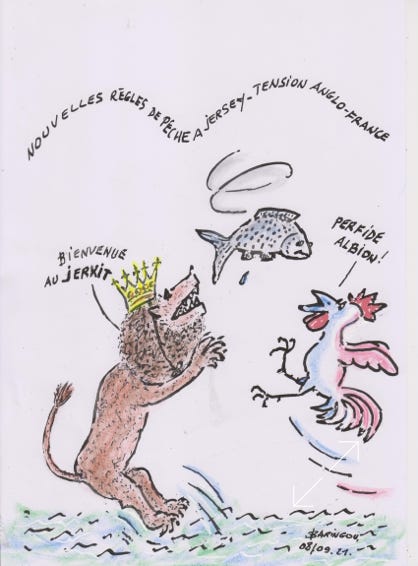 NOUVELLES RÈGLES DE PÊCHE A JERSEY-TENSION ANGLO-FRANCE
BIENVENUE
AU JERXIT
PERFIDE
ALBION!
08/09.21.